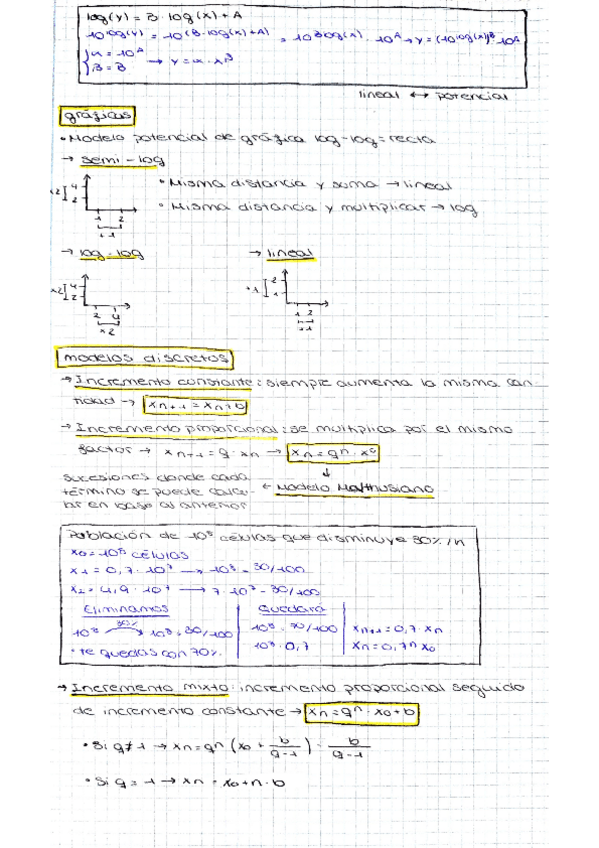 log(y) = B · log(x) + A
10^log(y) = 10^(B·log(x)+A) = 10^B log(x) · 10^A → y = (10^log(x))^B · 10^A
{ α = 10^A
β = B → y = α · x^β
lineal ↔ potencial
gráficas
• Modelo potencial de gráfica log-log = recta
→ semi-log
• Misma distancia y suma → lineal
• Misma distancia y multiplicar → log
x2 4 2
1 2
+1
→ log-log → lineal
x2 4 2
2 4
x2
+1 2 1
1 2
+1
modelos discretos
→ Incremento constante: siempre aumenta la misma can-
tidad → xn+1 = xn + b
→ Incremento proporcional: se multiplica por el mismo
factor → xn+1 = q · xn → xn = q^n · x0
↓
sucesiones donde cada
término se puede calcu- ← Modelo Malthusiano
lar en base al anterior
Población de 10^8 células que disminuye 30%/n
x0 = 10^8 células
x1 = 0,7 · 10^7 → 10^8 - 30/100
x2 = 4,9 · 10^7 → 7·10^7 - 30/100
Eliminamos Quedará
10^8 30% 10^8 · 30/100 10^8 · 70/100 xn+1 = 0,7 · xn
• te quedas con 70%. 10^8 · 0,7 xn = 0,7^n x0
→ Incremento mixto: incremento proporcional seguido
de incremento constante → xn = q^n · x0 + b
• Si q ≠ 1 → xn = q^n (x0 + b/q-1) - b/q-1
• Si q = 1 → xn = x0 + n · b